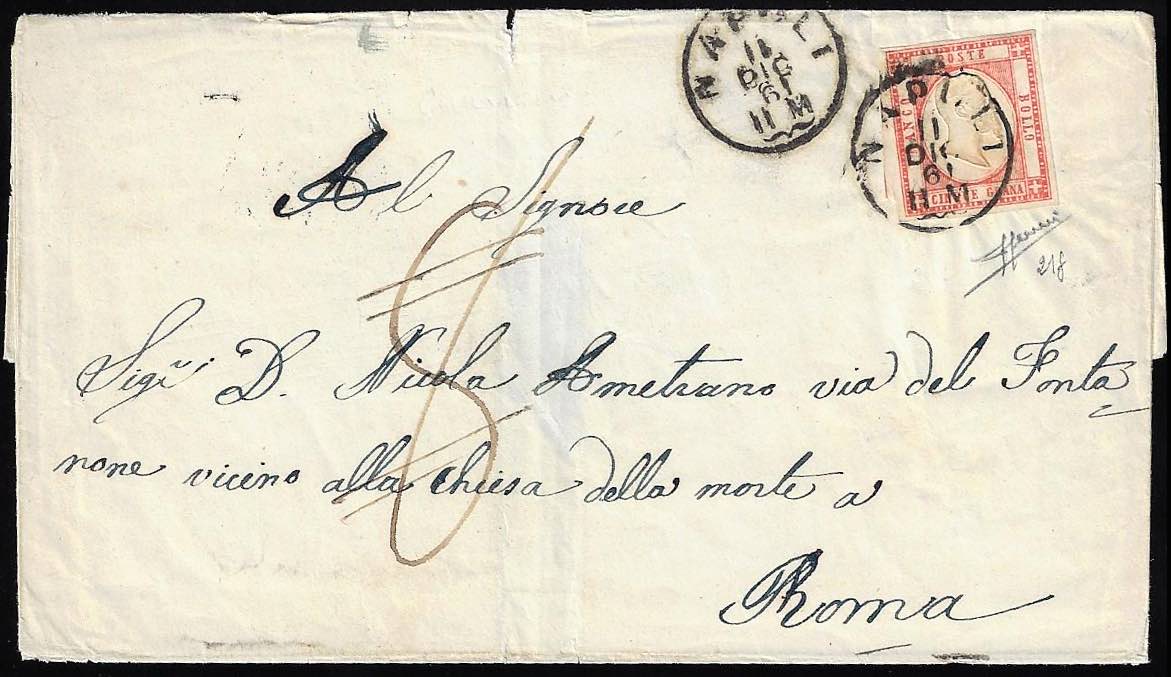 NAPOLI
11
DIC
61
11 M
FRANCO
POSTE
BOLLO
CINQUE GRANA
NAPOLI
11
DIC
61
11 M
218
Al Signore
8
Sig.r D. Nicola Ametrano via del Fonta
none vicino alla chiesa della morte a
Roma